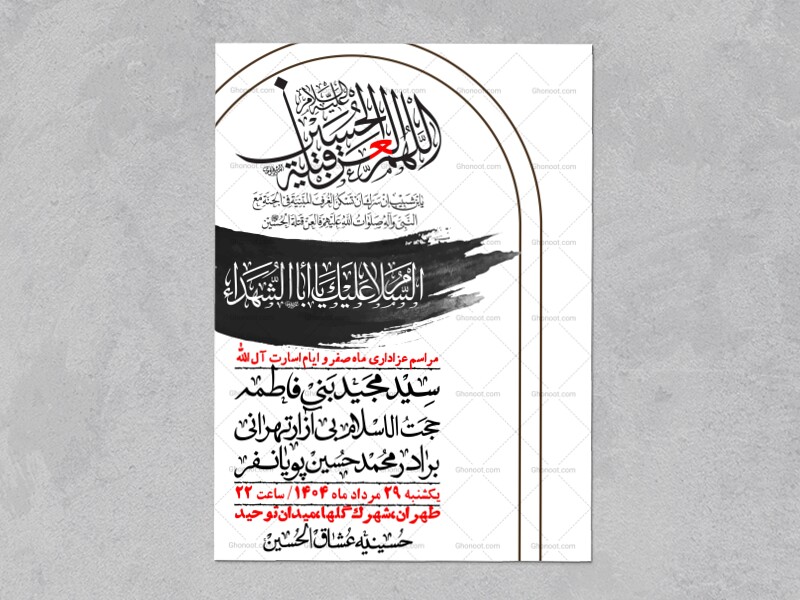 اللهم العن قتلة الحسین علیه السلام
یابن شبیب ان سرک ان تسکن الغرف المبنیة فی الجنة مع
النبی وآله صلوات الله علیهم فالعن قتلة الحسین
السلام علیک یا أبا الشهداء
مراسم عزاداری ماه صفر و ایام اسارت آل الله
سید مجید بنی فاطمه
حجت الاسلام بی آزار تهرانی
برادر محمد حسین پویانفر
یکشنبه ۲۹ مرداد ماه ۱۴۰۴ / ساعت ۲۲
طهران، شهرک گلها، میدان توحید
حسینیه عشاق الحسین
Ghonoot.com